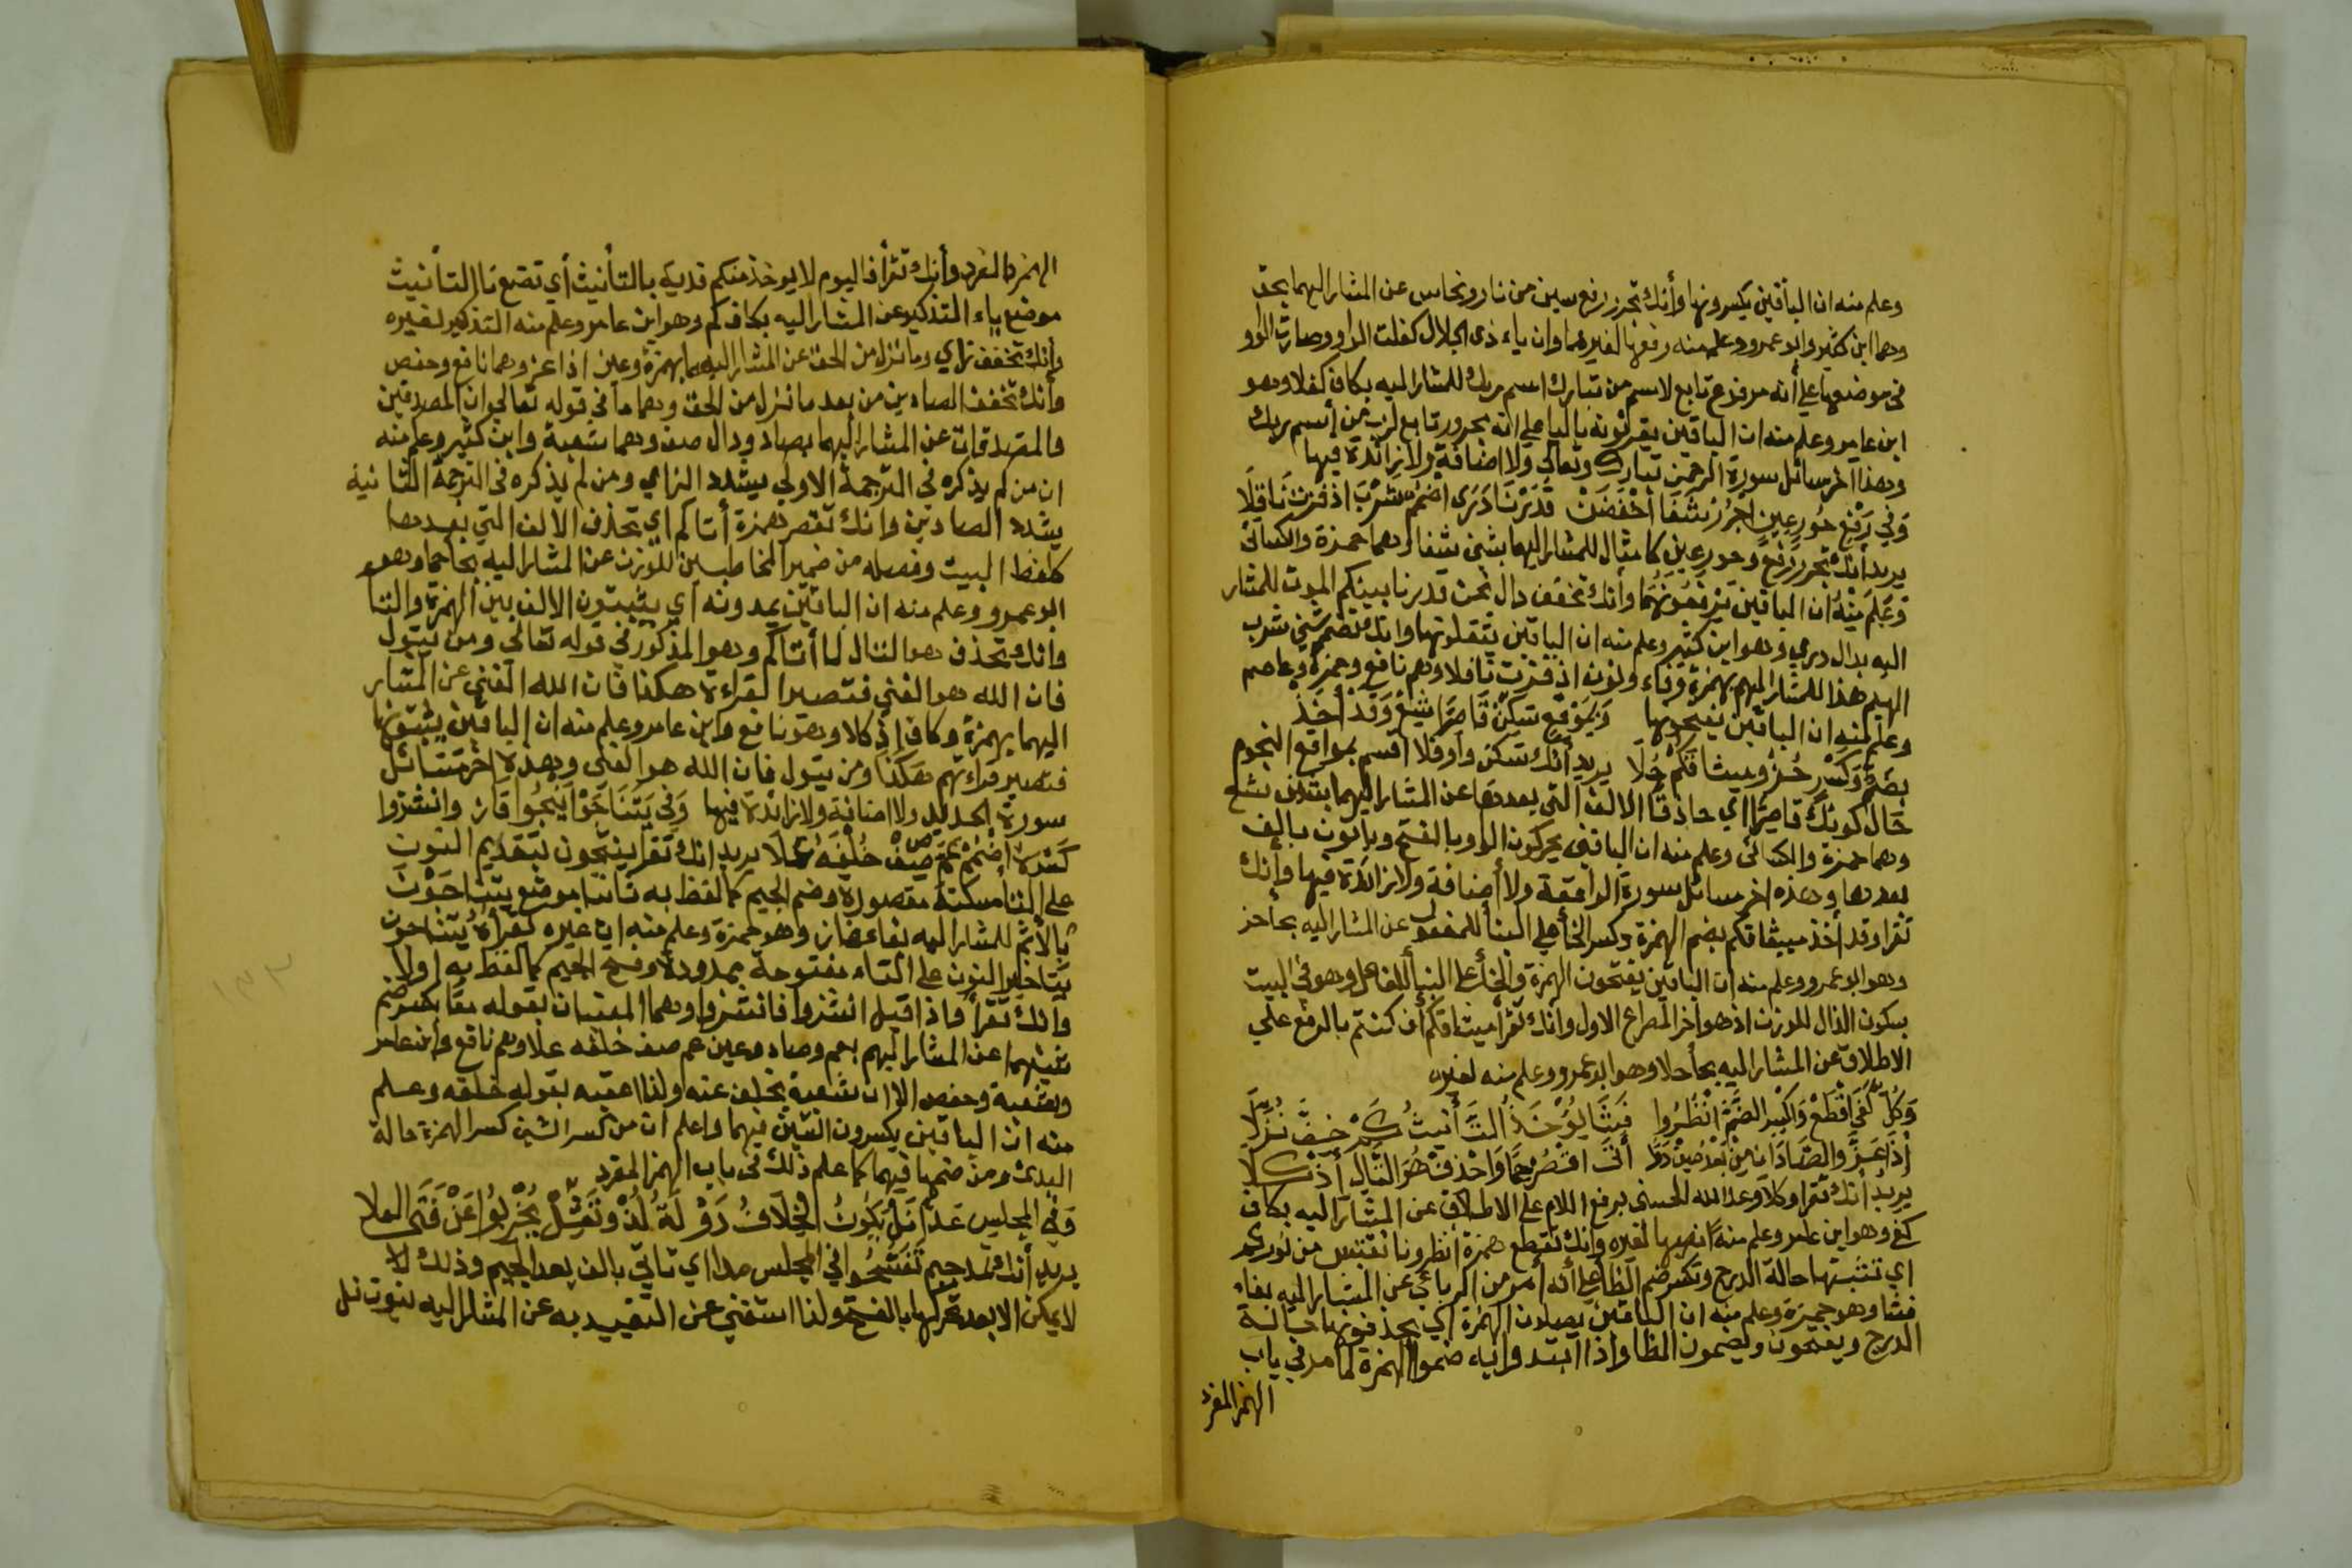 وعلم منه ان الباقين يكسرونها وأنك تجرر رفع سين من نار ونحاس عن المشار اليهما بحق
وهما ابن كثير وابو عمرو وعلم منه رفعها لغيرهما وان ياء ذى الجلال كفلت الواو وصارت الواو
في موضعها علي أنه مرفوع تابع لاسم من تبارك اسم ربك للمشار اليه بكاف كفلا وهو
ابن عامر وعلم منه ان الباقين يقرئونه باليا علي انه مجرور تابع لرب من إسم ربك
وهذا اخر مسائل سورة الرحمن تبارك وتعالي ولا اضافة ولا زائدة فيها
وَفي رَفْعِ حُورِ عِينٍ اجْرُرْ شَفَا اخْفِضَنْ قَدَرْنَا دَرَى اضْمُمْ شُرْبَ اذ فزت نَافِلَا
يريد أنك تجرر رفع وحور عين كامثال للمشار اليهما بشين شفا وهما حمزة والكسائى
وَعُلِمَ مِنْهُ ان الباقين يَرْفَعُونَهُما وانك تخفف دال نحن قدرنا بينكم الموت للمشار
اليه بدال دري وهو ابن كثير وعلم منه ان الباقين يثقلونها وانك تضم شين شرب
الهيم هذا للمشار اليهم بهمزة وفاء ونون اذ فزت نافلا وهم نافع وحمزة وعاصم
وعلم منه ان الباقين يفتحونها وَبمَوْقِعِ سَكِّنْ قَاصِرًا شِعْ وَقَدْ أُخِذَ
بِضَمٍّ وَكَسْرٍ حُزْ وميثاقكم حُلَا يريد أنك تسكن واو فلا اقسم بمواقع النجوم
حَالَ كَونِكَ قَاصِرًا اي حاذفًا الالف التي بعدها عن المشار اليهما بشين شع
وهما حمزة والكسائى وعلم منه ان الباقين يحركون الواو بالفتح ويأتون بالف
بعدها وهذه اخر مسائل سورة الواقعة ولا أضافة ولا زائدة فيها وأنك
تقرا وقد أخذ ميثاقكم بضم الهمزة وكسر الخا علي البنأ للمفعول عن المشار اليه بحا حز
وهو ابو عمرو وعلم منه ان الباقين يفتحون الهمزة والخأ علي البنأ للفاعل وهو في البيت
بسكون الذال للوزن اذ هو اخر المصراع الاول وأنك تقرأ ميثاقكم أن كنتم بالرفع علي
الاطلاق عن المشار اليه بحا حلا وهو ابو عمرو وعلم منه لغيره
وَكُلٌّ كَفَى اقْطَعْ وَاكْسِرِ الضَّمَّ انْظُرُوا فَشَا يُؤْخَذُ التَّأنِيثُ كَمْ خِفَّ نُزِّلَا
إذَا عَزَّ والصَّادَانِ مِنْ بَعْدُ صِفْ دُمَا أتَى اقْصُرْ حِمًا وَاحْذِفْ هُوَ التَّالِ إذْ كِلَا
يريد أنك تقرا وكلا وعد الله الحسنى برفع اللام علي الاطلاق عن المشار اليه بكاف
كفى وهو ابن عامر وعلم منه نصبها لغيره وانك تقطع همزة انظرونا نقتبس من نوركم
اي تثبتها حالة الدرج وتكسر ضم الظا علي أنه أمر من الرباعي عن المشار اليه بفاء
فشا وهو حمزة وعلم منه ان الباقين يصلون الهمزة اي يحذفونها حالة
الدرج ويفتحون ويضمون الظا واذا ابتدوا به ضموا الهمزة كما مر في باب
الهمز المفرد
الهمز المفرد وأنك تقرأ فاليوم لا يوخذ منكم فدية بالتأنيث أي تضع تا التأنيث
موضع ياء التذكير عن المشار اليه بكاف كم وهو ابن عامر وعلم منه التذكير لغيره
وأنك تخفف زاي وما نزل من الحق عن المشار اليهما بهمزة وعين اذا عز وهما نافع وحفص
وأنك تخفف الصادين من بعد ما نزل من الحق وهما ما في قوله تعالي ان المصدقين
والمصدقات عن المشار اليهما بصاد ودال صف دما وهما شعبة وابن كثير وعلم منه
ان من لم يذكره في الترجمة الاولي يشدد الزاي ومن لم يذكره في الترجمة الثانية
يشدد الصادين وانك تقصر همزة أتاكم اي تحذف الالف التي بعدها
كلفظ البيت وفصله من ضمير المخاطبين للوزن عن المشار اليه بحا حما وهو
ابو عمرو وعلم منه ان الباقين يمدونه أي يثبتون الالف بين الهمزة والتا
وانك تحذف هو التال لما أتاكم وهو المذكور في قوله تعالي ومن يتول
فان الله هو الغني فتصير القراءة هكذا فان الله الغني عن المشار
اليهما بهمزة وكاف إذ كلا وهو نافع وابن عامر وعلم منه ان الباقين يثبتونها
فتصير قراءتهم هكذا ومن يتول فان الله هو الغني وهذه اخر مسائل
سورة الحديد ولا اضافة ولا زائدة فيها وَفي يَتَنَاجَوْا يَنْتَجُوا فَازَ وانشزوا
كَسْرَهُ اضْمُمْ عَمَّ صِفْ خُلْفَهُ عَلَا يريد انك تقرا ينتجون بتقديم النون
علي التا مسكنة مقصورة وضم الجيم كما لفظ به ثانيا موضع يتناجَوْنَ
بالأثم للمشار اليه بفا فاز وهو حمزة وعلم منه ان غيره تقرأه يتناجون
بتاخير النون علي التاء مفتوحة ممدودة وفتح الجيم كما لفظ به اولا
وانك تقرأ واذا قيل انشزوا فانشزوا وهما المعنيان بقوله معًا بكسر ضم
شينهما عن المشار اليهم بعم وصاد وعين عم صف خلفه علا وهم نافع وأبن عامر
وشعبة وحفص الا ان شعبة بخلف عنه ولذا اعقبه بقوله خلفه وعلم
منه ان الباقين يكسرون الشين فيهما واعلم ان من كسر الشين كسر الهمزة حالة
البدئ ومن ضمها فيهما كما علم ذلك في باب الهمز المفرد
وَفِي المَجْلِسِ امْدُدْ نَلْ يَكُونُ الخِلَافُ دَوْلَةٌ لُذْ وَثَقِّلْ يُخْرِبُوا عَنْ فَتَى العلا
يريد أنك تمد جيم تَفَسَّحُوا في المجلس مدا اي تاتي بالف بعد الجيم وذلك لا
لا يمكن الا بعد تحركها بالفتح ولذا استغني عن التقييد به عن المشار اليه بنون نل
١٣٢